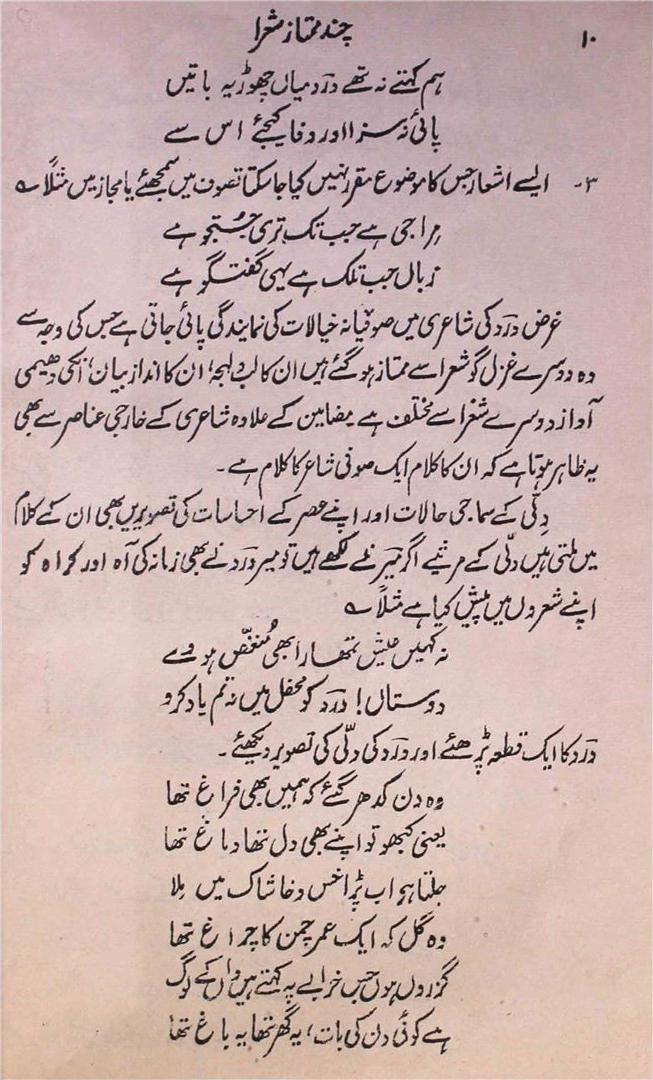 ۱۰ چند ممتاز شعرا
ہم کہتے نہ تھے درد میاں چھوڑ یہ باتیں
پائی نہ سزا اور وفا کیجئے اس سے
۳۔ ایسے اشعار جس کا موضوع مقرر نہیں کیا جا سکتا تصوف میں سمجھئے یا مجاز میں مثلاً ؎
مرا جی ہے جب تک تری جُستجو ہے
زباں جب تلک ہے یہی گفتگو ہے
غرض درد کی شاعری میں صوفیانہ خیالات کی نمایندگی پائی جاتی ہے جس کی وجہ سے
وہ دوسرے غزل گو شعرا سے ممتاز ہو گئے ہیں ان کا لب ولہجہ، ان کا انداز بیان، انکی دھیمی
آواز دوسرے شعرا سے مختلف ہے مضامین کے علاوہ شاعری کے خارجی عناصر سے بھی
یہ ظاہر ہوتا ہے کہ ان کا کلام ایک صوفی شاعر کا کلام ہے۔
دِلّی کے سماجی حالات اور اپنے عصر کے احساسات کی تصویریں بھی ان کے کلام
میں ملتی ہیں دلّی کے مرثیے اگر میر نے لکھے ہیں تو میر درد نے بھی زمانہ کی آہ اور کراہ کو
اپنے شعروں میں پیش کیا ہے مثلاً ؎
نہ کہیں عیش تمھارا بھی مُنغّص ہووے
دوستاں! درد کو محفل میں نہ تم یاد کرو
درد کا ایک قطعہ پڑھئے اور درد کی دلّی کی تصویر دیکھئے۔
وہ دن کدھر گئے کہ ہمیں بھی فراغ تھا
یعنی کبھو تو اپنے بھی دل تھا دماغ تھا
جلتا ہے اب پڑا خس و خاشاک میں مِلا
وہ گل کہ ایک عمر چمن کا چراغ تھا
گزروں ہوں جس خرابے پہ کہتے ہیں واں کے لوگ
ہے کوئی دن کی بات، یہ گھر تھا یہ باغ تھا